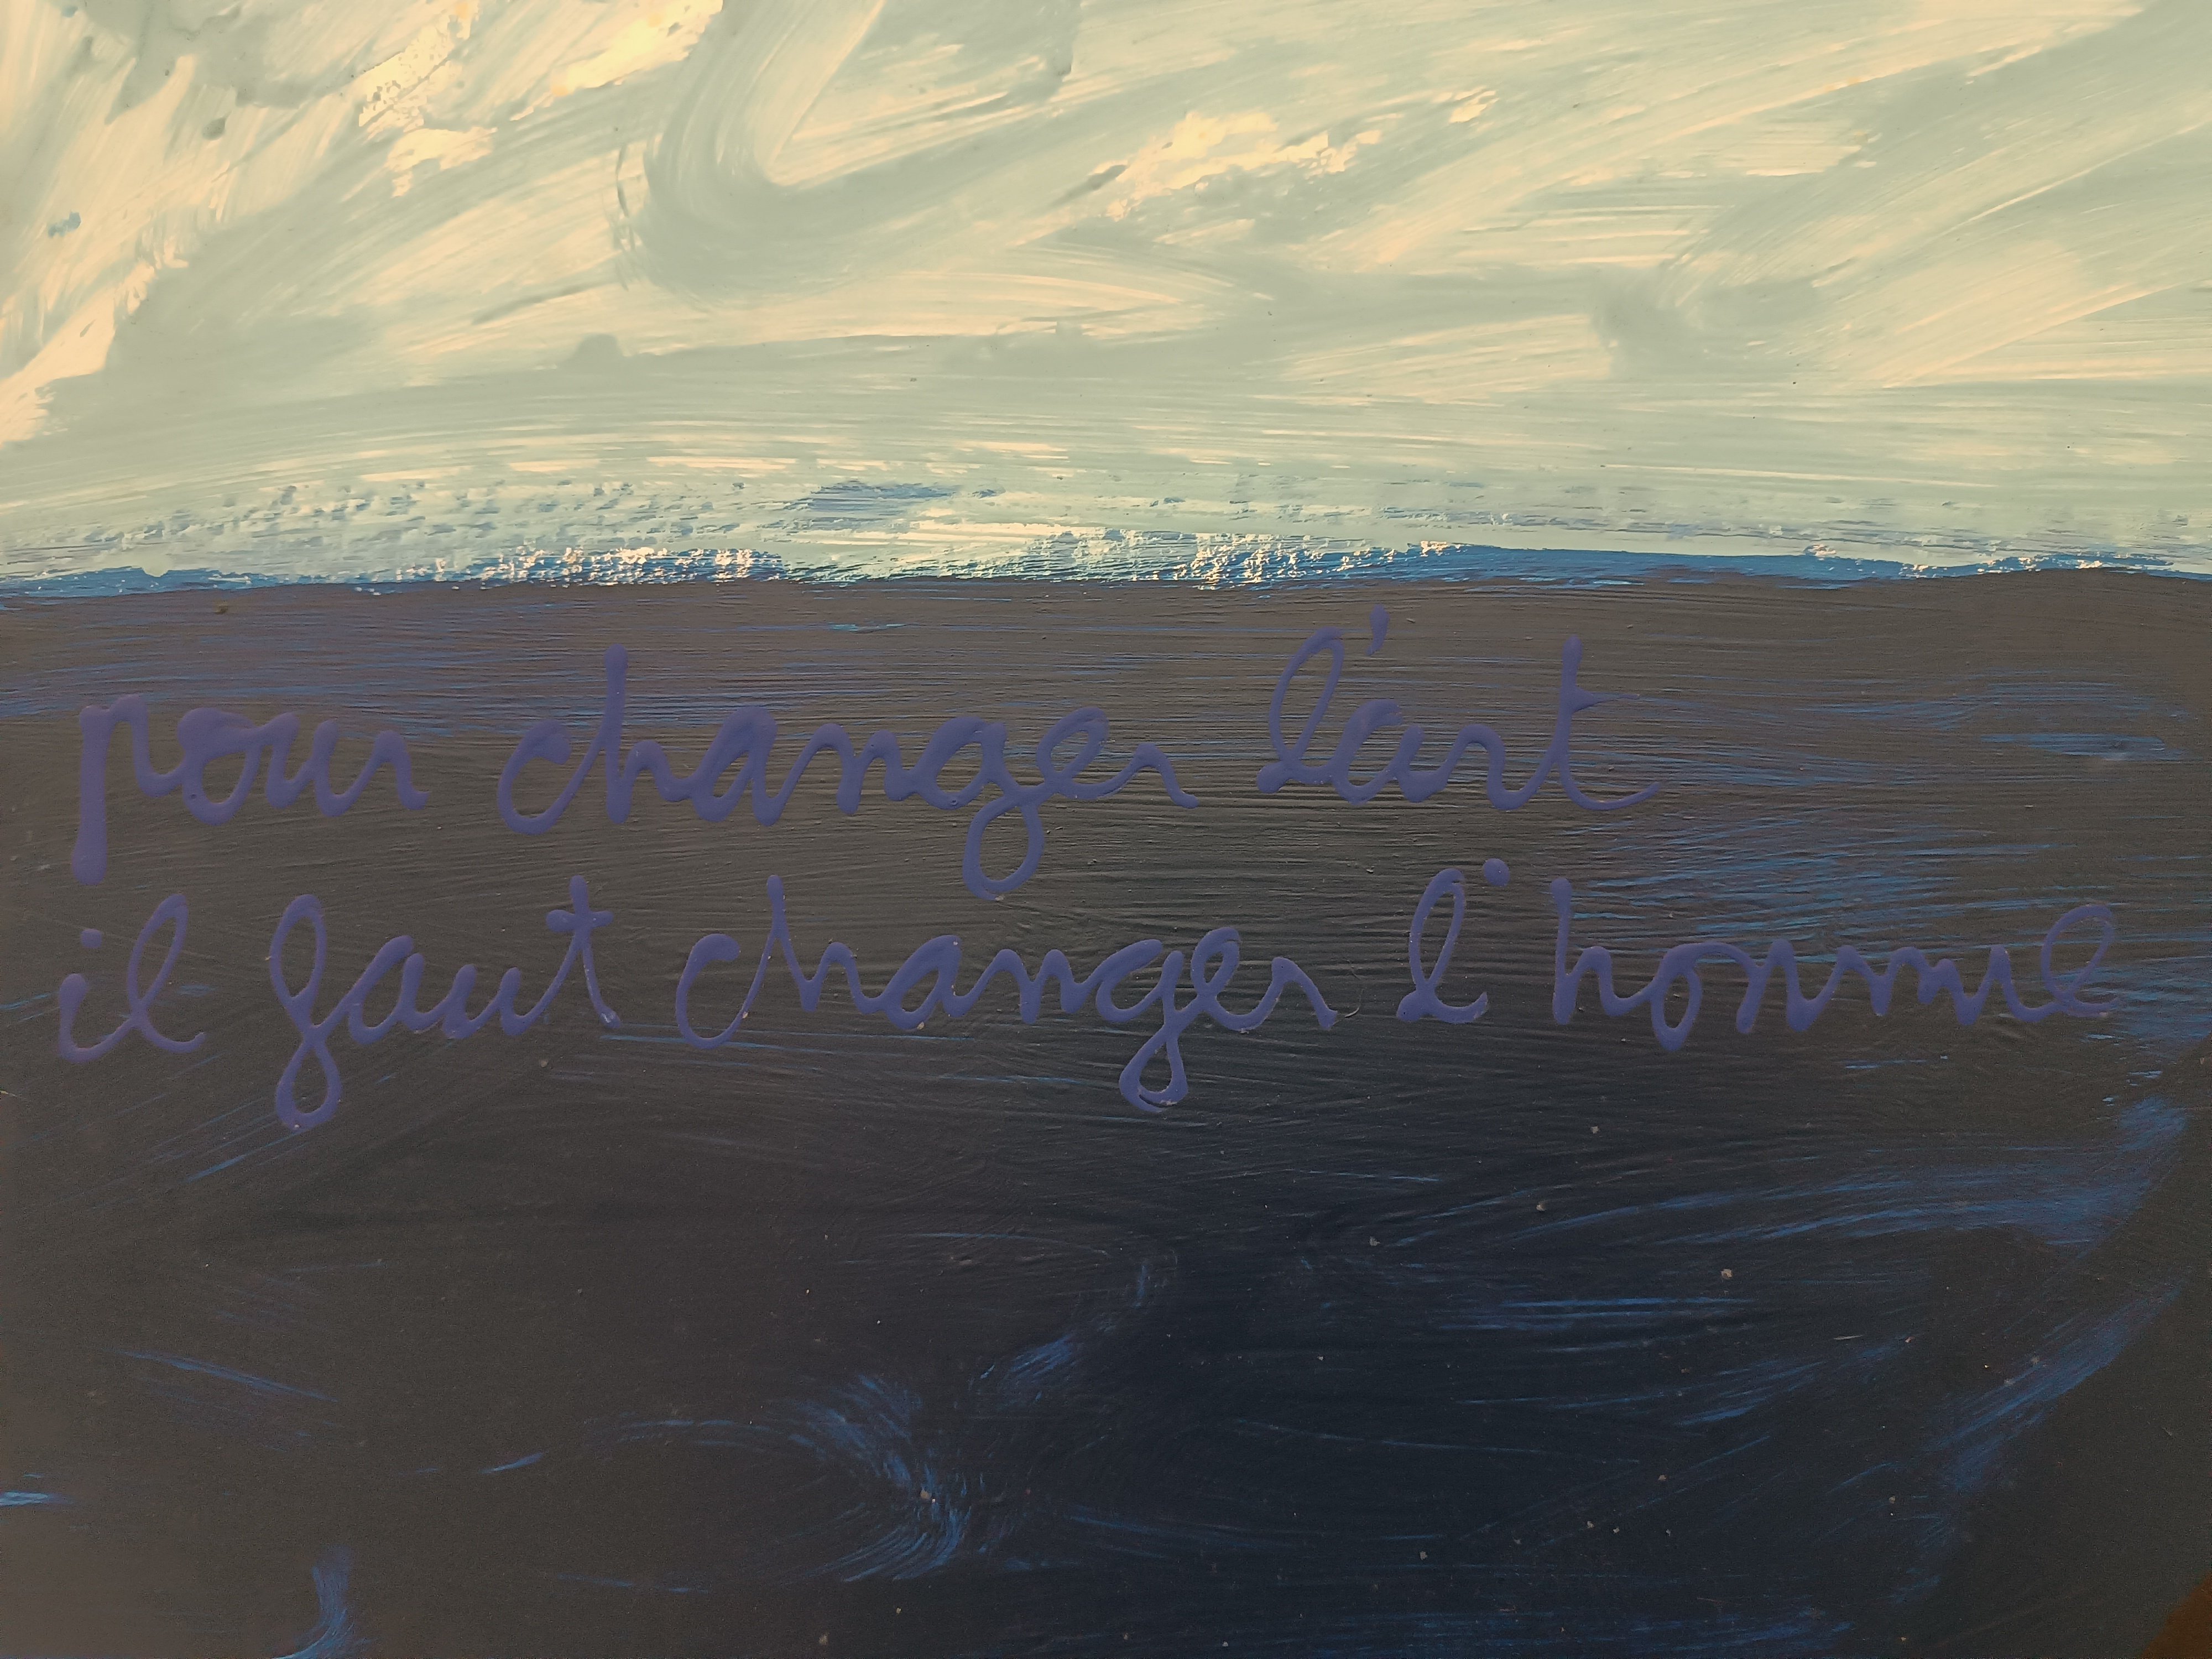 pour changer l'art
il faut changer l'homme